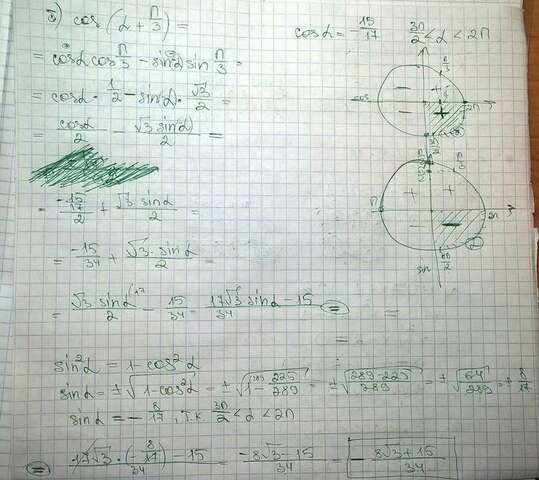 б) cos(α + π/3) =
cosα = -15/17   3π/2 < α < 2π
= cosα cos π/3 - sinα sin π/3 =
= cosα · 1/2 - sinα · √3/2 =
= cosα/2 - √3 sinα/2 =
= -15/17/2 + √3 sinα/2 =
= -15/34 + √3 · sinα/2 =
= √3 sinα/2 - 15/34 = 17√3 sinα - 15/34 =
sin²α = 1 - cos²α
sinα = ±√(1-cos²α) = ±√(1 - 225/289) = ±√(289-225/289) = ±√(64/289) = ±8/17
sinα = -8/17, т.к. 3π/2 < α < 2π
= 17√3 · (-8/17) - 15/34 = -8√3 - 15/34 = - 8√3 + 15/34
cos
- +
- +
2π
3π/2
π
+ +
-
2π
3π/2
sin